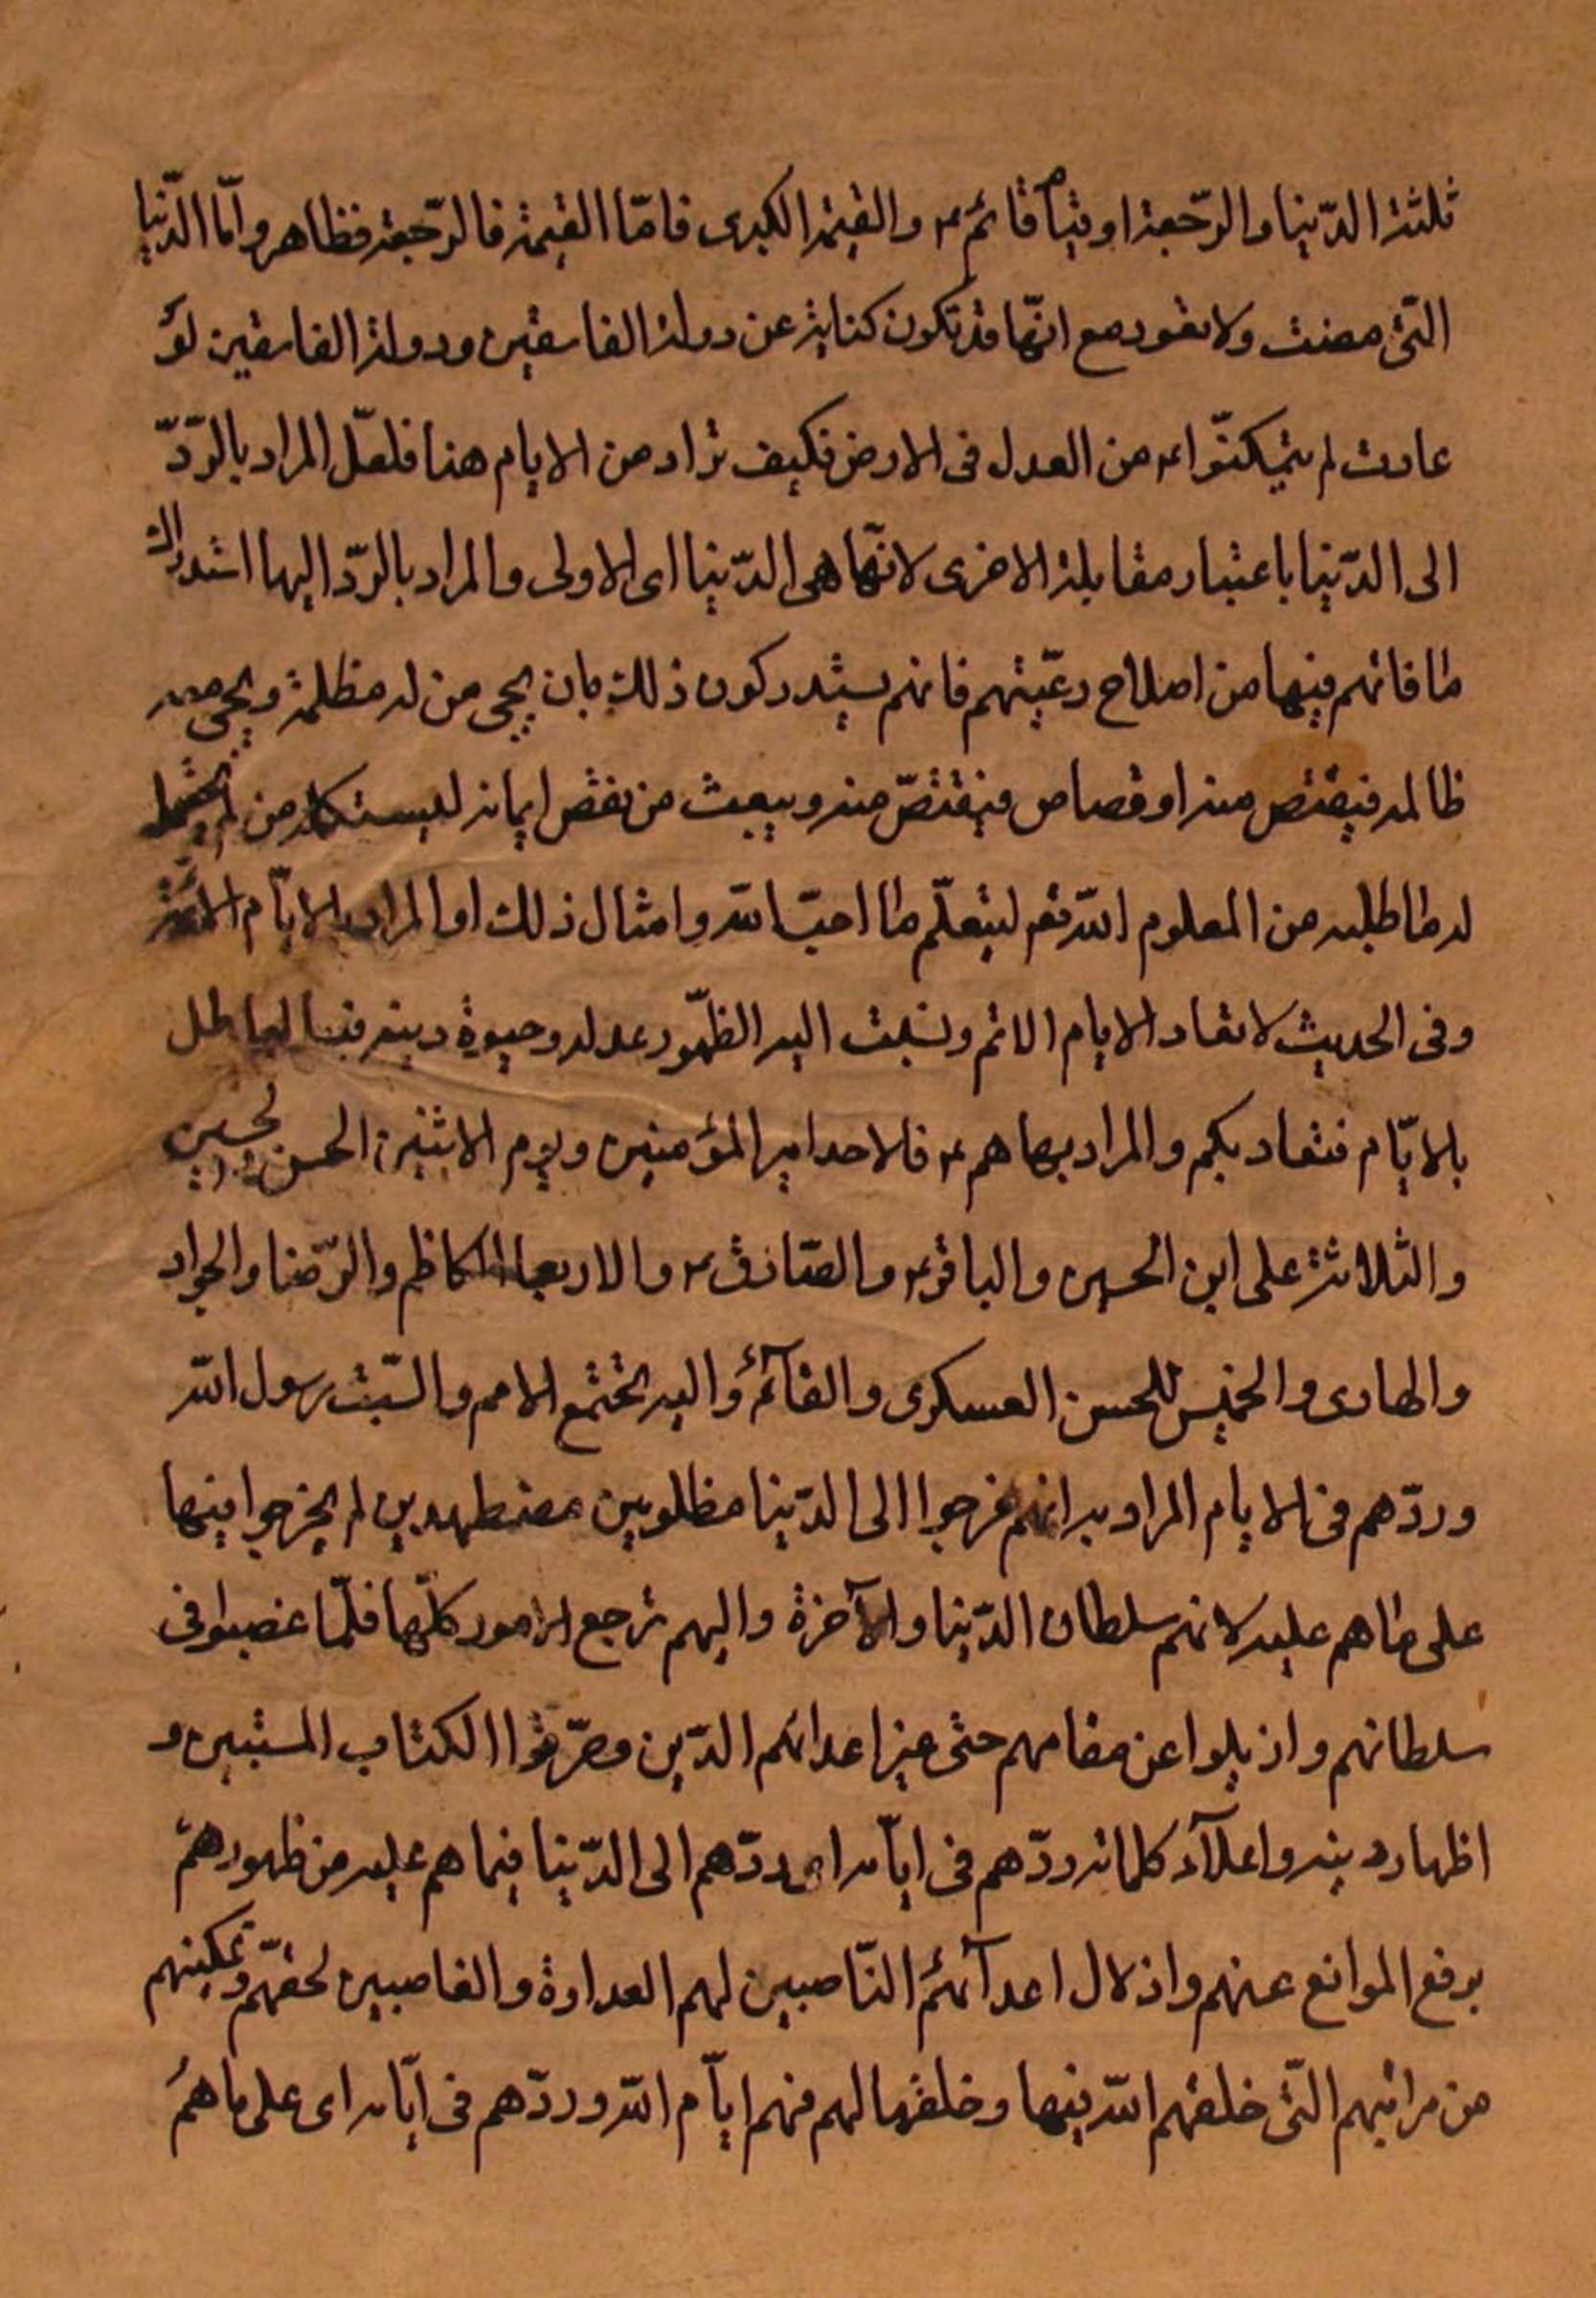 ثلثة الدّنيا والرّجعة او قيام قائم ع والقيمة الكبرى فامّا القيمة فالرّجعة فظاهر وامّا الدّنيا
التّى مضت ولا تعود مع انّها قد تكون كناية عن دولة الفاسقين ودولة الفاسقين لو
عادت لم يتمكنّوا ع من العدل فى الارض فكيف تراد من الايام هنا فلعلّ المراد بالرّدّ
الى الدّنيا باعتبار مقابلة الاخرى لانّها هى الدّنيا اى الاولى والمراد بالرّدّ اليها استدراك
ما فاتهم فيها من اصلاح رعيّتهم فانهم يستدركون ذلك بان يحيى من له مظلمة ويحيى معه
ظالمه فيقتص منه او قصاص فيقتصّ منه ويبعث من نقص ايمانه ليستكمله من
له ما طلبه من العلوم الله تعم ليتعلّم ما احبّ الله وامثال ذلك او المراد بالايّام الائمّة
وفى الحديث لا تعاد الايام الائم ونسبت اليه الظّهور عدله وحيوة دينه فينا الباطل
بالايّام فتعاديكم والمراد بها هم ع فالاحد امير المؤمنين ويوم الاثنين الحسن والحسين
والثلاثة على ابن الحسين والباقر ع والصّادق ع والاربعا الكاظم والرّضا والجواد
والهادى والخميس للحسن العسكرى والقآئم واليه تجتمع الامم والسّبت رسول الله
وردّهم فى الايام المراد به انهم خرجوا الى الدّنيا مظلومين مضطهدين لم يخرجوا فيها
على ما هم عليه لانهم سلطان الدّنيا والآخرة واليهم ترجع الامور كلّها فلمّا غصبوا فى
سلطانهم وازيلوا عن مقامهم حتى غيّر اعدائهم الدّين وحرّفوا الكتاب المستبين و
اظهار دينه واعلآء كلماته ردّهم فى ايّامه اى ردّهم الى الدّنيا فيما هم عليه من ظهورهم
برفع الموانع عنهم واذلال اعدآئهم النّاصبين لهم العداوة والغاصبين لحقهم وتمكينهم
من مراتبهم التّى خلقهم الله فيها وخلقها لهم فهم ايّام الله وردّهم فى ايّامه اى على ما هم